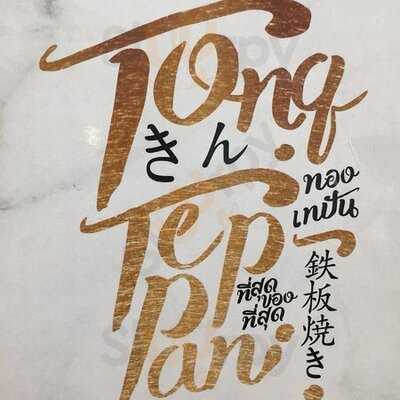 Tong
きん
ทอง
เทปัน
Tep
pan
ที่สุด
ของ
ที่สุด
鉄板焼き